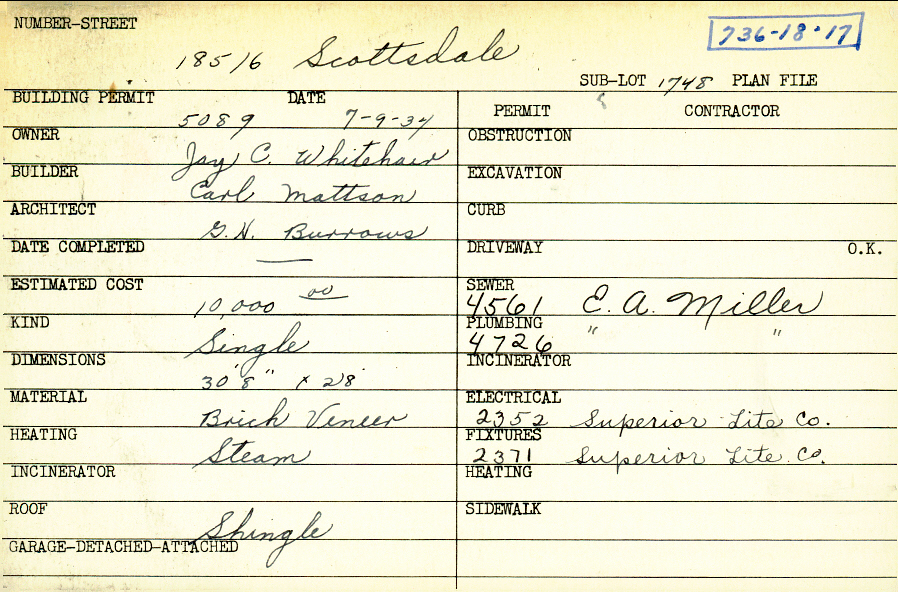 NUMBER-STREET
736-18-17
18516 Scottsdale
SUB-LOT 1748 PLAN FILE
BUILDING PERMIT DATE
5089 7-9-34
OWNER
Jay C. Whitehair
BUILDER
Carl Mattson
ARCHITECT
G.H. Burrows
DATE COMPLETED
—
ESTIMATED COST
10,000 00
KIND
Single
DIMENSIONS
30'8" x 28'
MATERIAL
Brick Veneer
HEATING
Steam
INCINERATOR
ROOF
Shingle
GARAGE-DETACHED-ATTACHED
PERMIT CONTRACTOR
OBSTRUCTION
EXCAVATION
CURB
DRIVEWAY O.K.
SEWER
4561 E. A. Miller
PLUMBING
4726 " "
INCINERATOR
ELECTRICAL
2352 Superior Lite Co.
FIXTURES
2371 Superior Lite Co.
HEATING
SIDEWALK